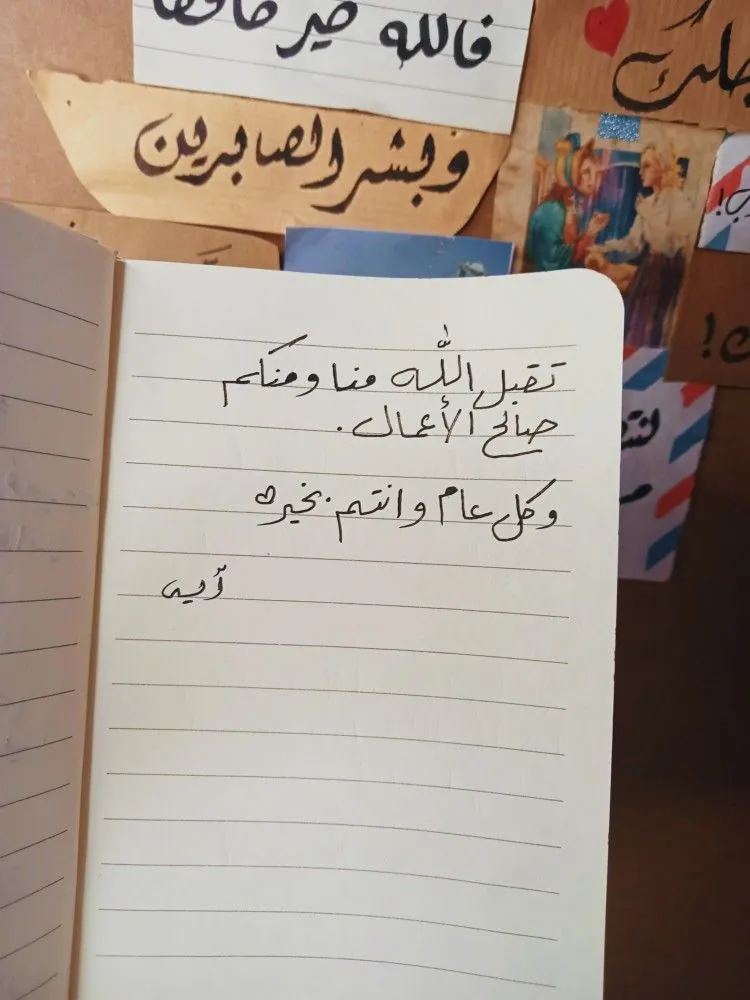 فالله خير حافظا
وبشر الصابرين
تقبل الله منا ومنكم
صالح الأعمال.
وكل عام وانتم بخير
آيه